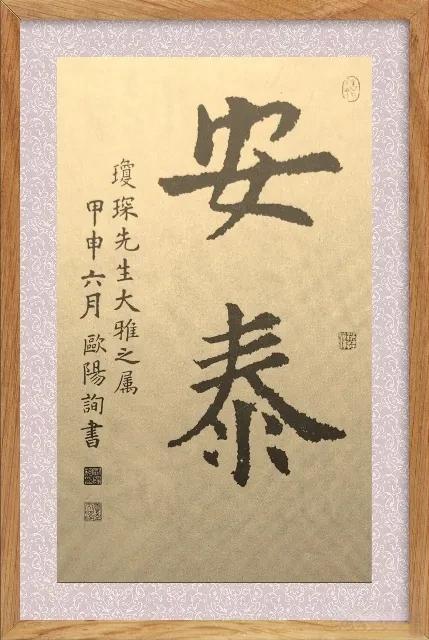 安泰
瓊琛先生大雅之属
甲申六月歐陽詢書